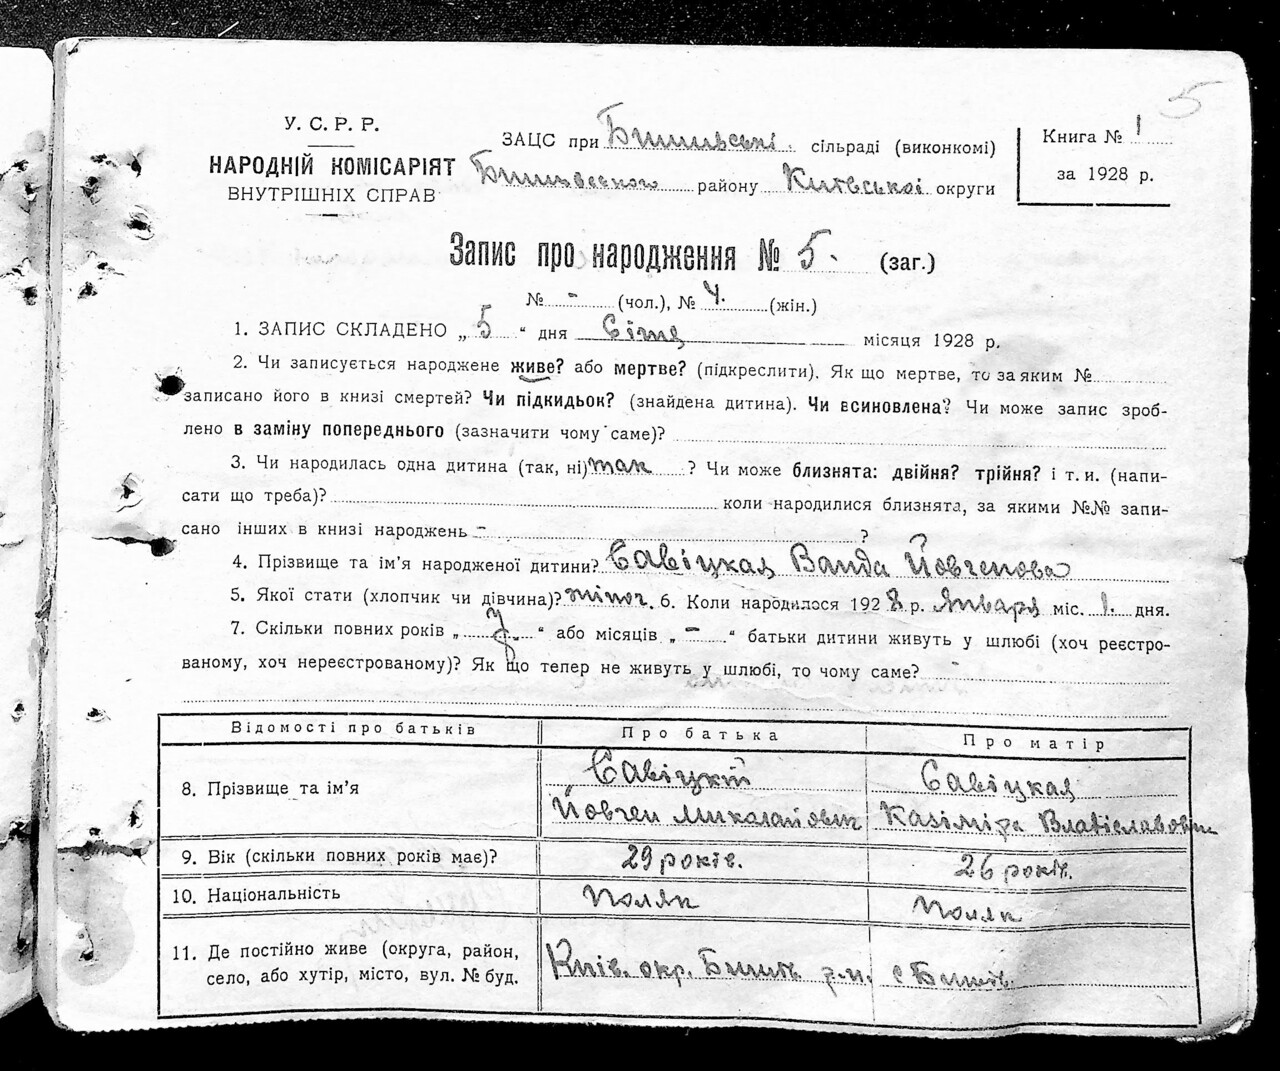 5
У. С. Р. Р.
НАРОДНІЙ КОМІСАРІЯТ
ВНУТРІШНІХ СПРАВ
ЗАЦС при Бишівські сільраді (виконкомі)
Бишівського району Київської округи
Книга № 1
за 1928 р.
Запис про народження № 5. (заг.)
№ - (чол.), № 4. (жін.)
1. ЗАПИС СКЛАДЕНО „ 5 “ дня Січня місяця 1928 р.
2. Чи записується народжене живе? або мертве? (підкреслити). Як що мертве, то за яким №
записано його в книзі смертей? Чи підкидьок? (знайдена дитина). Чи всиновлена? Чи може запис зроб-
лено в заміну попереднього (зазначити чому саме)?
3. Чи народилась одна дитина (так, ні) так ? Чи може близнята: двійня? трійня? і т. и. (напи-
сати що треба)? коли народилися близнята, за якими №№ запи-
сано інших в книзі народжень - ?
4. Прізвище та ім'я народженої дитини? Савіцкая Ванда Йовгенова
5. Якої стати (хлопчик чи дівчина)? жіноч. 6. Коли народилося 1928 р. Января міс. 1. дня.
7. Скільки повних років „ “ або місяців „ - “ батьки дитини живуть у шлюбі (хоч реєстро-
ваному, хоч нереєстрованому)? Як що тепер не живуть у шлюбі, то чому саме? -
Відомості про батьків Про батька Про матір
8. Прізвище та ім'я
Савіцкій Савіцкая
Йовген Миколайович Казіміра Владіславовн
9. Вік (скільки повних років має)? 29 років. 26 років.
10. Національність Поляк Поляк
11. Де постійно живе (округа, район, село, або хутір, місто, вул. № буд. Київ. окр. Бишів. р-н. с Бишів.